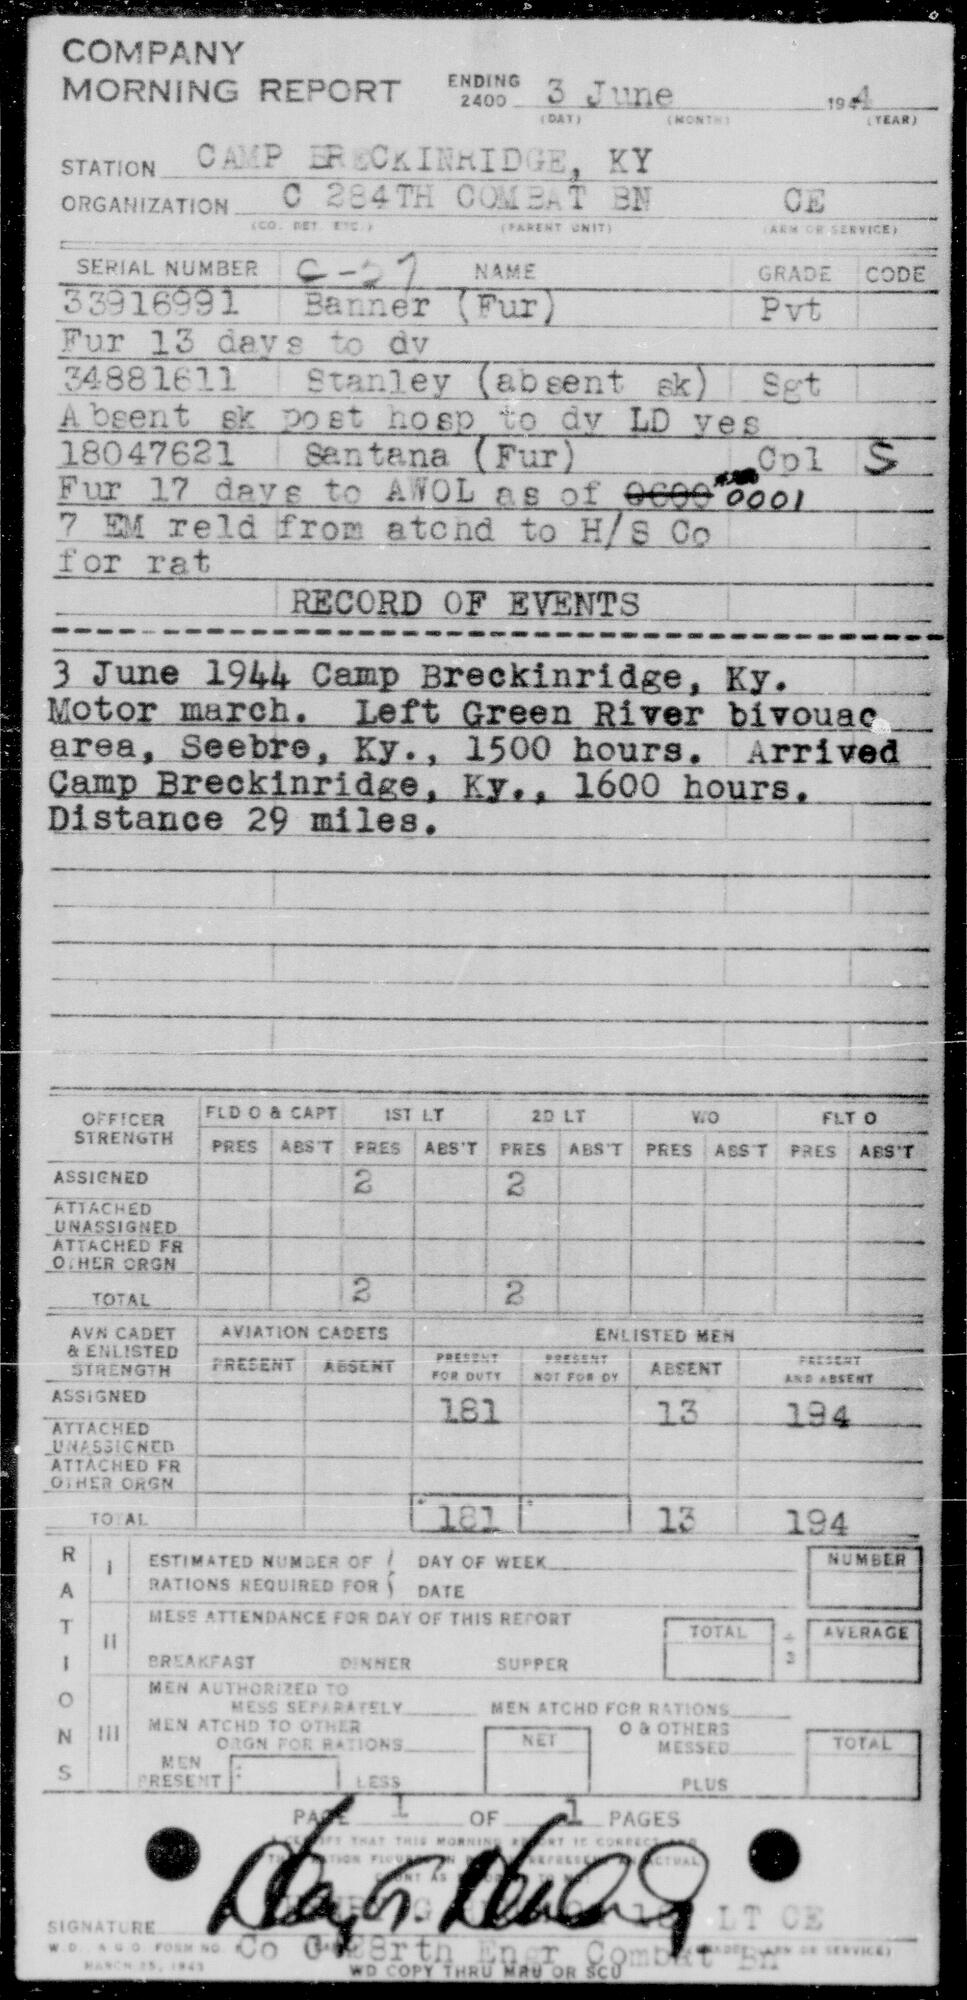 COMPANY
MORNING REPORT ENDING 2400 3 June 1944
(DAY) (MONTH) (YEAR)
STATION CAMP BRECKINRIDGE, KY
ORGANIZATION C 284TH COMBAT BN CE
(CO. DET. ETC.) (PARENT UNIT) (ARM OR SERVICE)
SERIAL NUMBER C-27 NAME GRADE CODE
33916991 Banner (Fur) Pvt
Fur 13 days to dy
34881611 Stanley (absent sk) Sgt
Absent sk post hosp to dy LD yes
18047621 Santana (Fur) Cpl S
Fur 17 days to AWOL as of 0600 0001
7 EM reld from atchd to H/S Co
for rat
RECORD OF EVENTS
3 June 1944 Camp Breckinridge, Ky.
Motor march. Left Green River bivouac
area, Seebre, Ky., 1500 hours. Arrived
Camp Breckinridge, Ky., 1600 hours.
Distance 29 miles.
OFFICER STRENGTH FLD O & CAPT 1ST LT 2D LT W/O FLT O
PRES ABS'T PRES ABS'T PRES ABS'T PRES ABS'T PRES ABS'T
ASSIGNED 2 2
ATTACHED UNASSIGNED
ATTACHED FR OTHER ORGN
TOTAL 2 2
AVN CADET & ENLISTED STRENGTH AVIATION CADETS ENLISTED MEN
PRESENT ABSENT PRESENT FOR DUTY PRESENT NOT FOR DY ABSENT PRESENT AND ABSENT
ASSIGNED 181 13 194
ATTACHED UNASSIGNED
ATTACHED FR OTHER ORGN
TOTAL 181 13 194
RATIONS
I ESTIMATED NUMBER OF DAY OF WEEK NUMBER
RATIONS REQUIRED FOR DATE
II MESS ATTENDANCE FOR DAY OF THIS REPORT TOTAL ÷ 3 AVERAGE
BREAKFAST DINNER SUPPER
III MEN AUTHORIZED TO
MESS SEPARATELY MEN ATCHD FOR RATIONS
MEN ATCHD TO OTHER
ORGN FOR RATIONS NET O & OTHERS MESSED TOTAL
MEN PRESENT LESS PLUS
PAGE 1 OF 1 PAGES
THAT THIS MORNING REPORT IS CORRECT
SIGNATURE LT CE
W.D., A.G.O. FORM NO. Co Engr Combat Bn
MARCH 25, 1943 WD COPY THRU MRU OR SCU